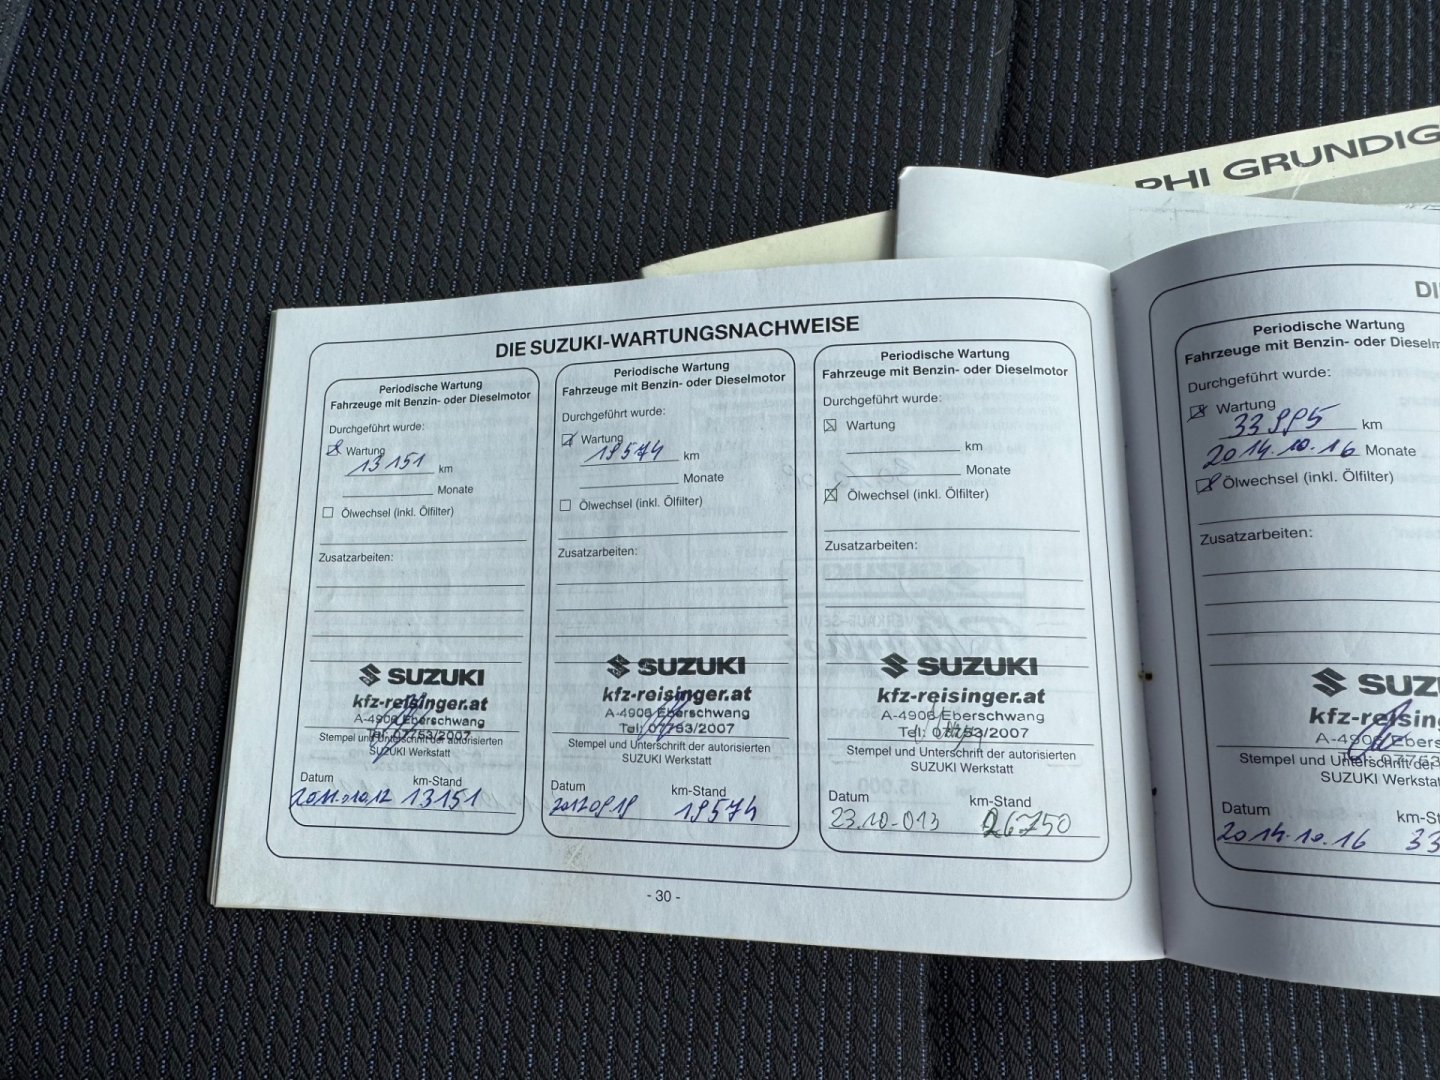 PHI GRUNDIG
DIE SUZUKI-WARTUNGSNACHWEISE
Periodische Wartung
Fahrzeuge mit Benzin- oder Dieselmotor
Durchgeführt wurde:
Wartung
13151 km
Monate
Ölwechsel (inkl. Ölfilter)
Zusatzarbeiten:
SUZUKI
kfz-reisinger.at
A-4906 Eberschwang
Tel: 07753/2007
Stempel und Unterschrift der autorisierten
SUZUKI Werkstatt
Datum km-Stand
2011.10.12 13151
Periodische Wartung
Fahrzeuge mit Benzin- oder Dieselmotor
Durchgeführt wurde:
Wartung
19574 km
Monate
Ölwechsel (inkl. Ölfilter)
Zusatzarbeiten:
SUZUKI
kfz-reisinger.at
A-4906 Eberschwang
Tel: 07753/2007
Stempel und Unterschrift der autorisierten
SUZUKI Werkstatt
Datum km-Stand
20120919 19574
Periodische Wartung
Fahrzeuge mit Benzin- oder Dieselmotor
Durchgeführt wurde:
Wartung
km
Monate
Ölwechsel (inkl. Ölfilter)
Zusatzarbeiten:
SUZUKI
kfz-reisinger.at
A-4906 Eberschwang
Tel: 07753/2007
Stempel und Unterschrift der autorisierten
SUZUKI Werkstatt
Datum km-Stand
23.10-013 26750
- 30 -
DI
Periodische Wartung
Fahrzeuge mit Benzin- oder Dieselm
Durchgeführt wurde:
Wartung
33995 km
2014.10.16 Monate
Ölwechsel (inkl. Ölfilter)
Zusatzarbeiten:
SUZU
kfz-reising
A-4906 Ebers
07753
Stempel und Unterschrift der
SUZUKI Werkstatt
Datum km-St
2014.10.16 33